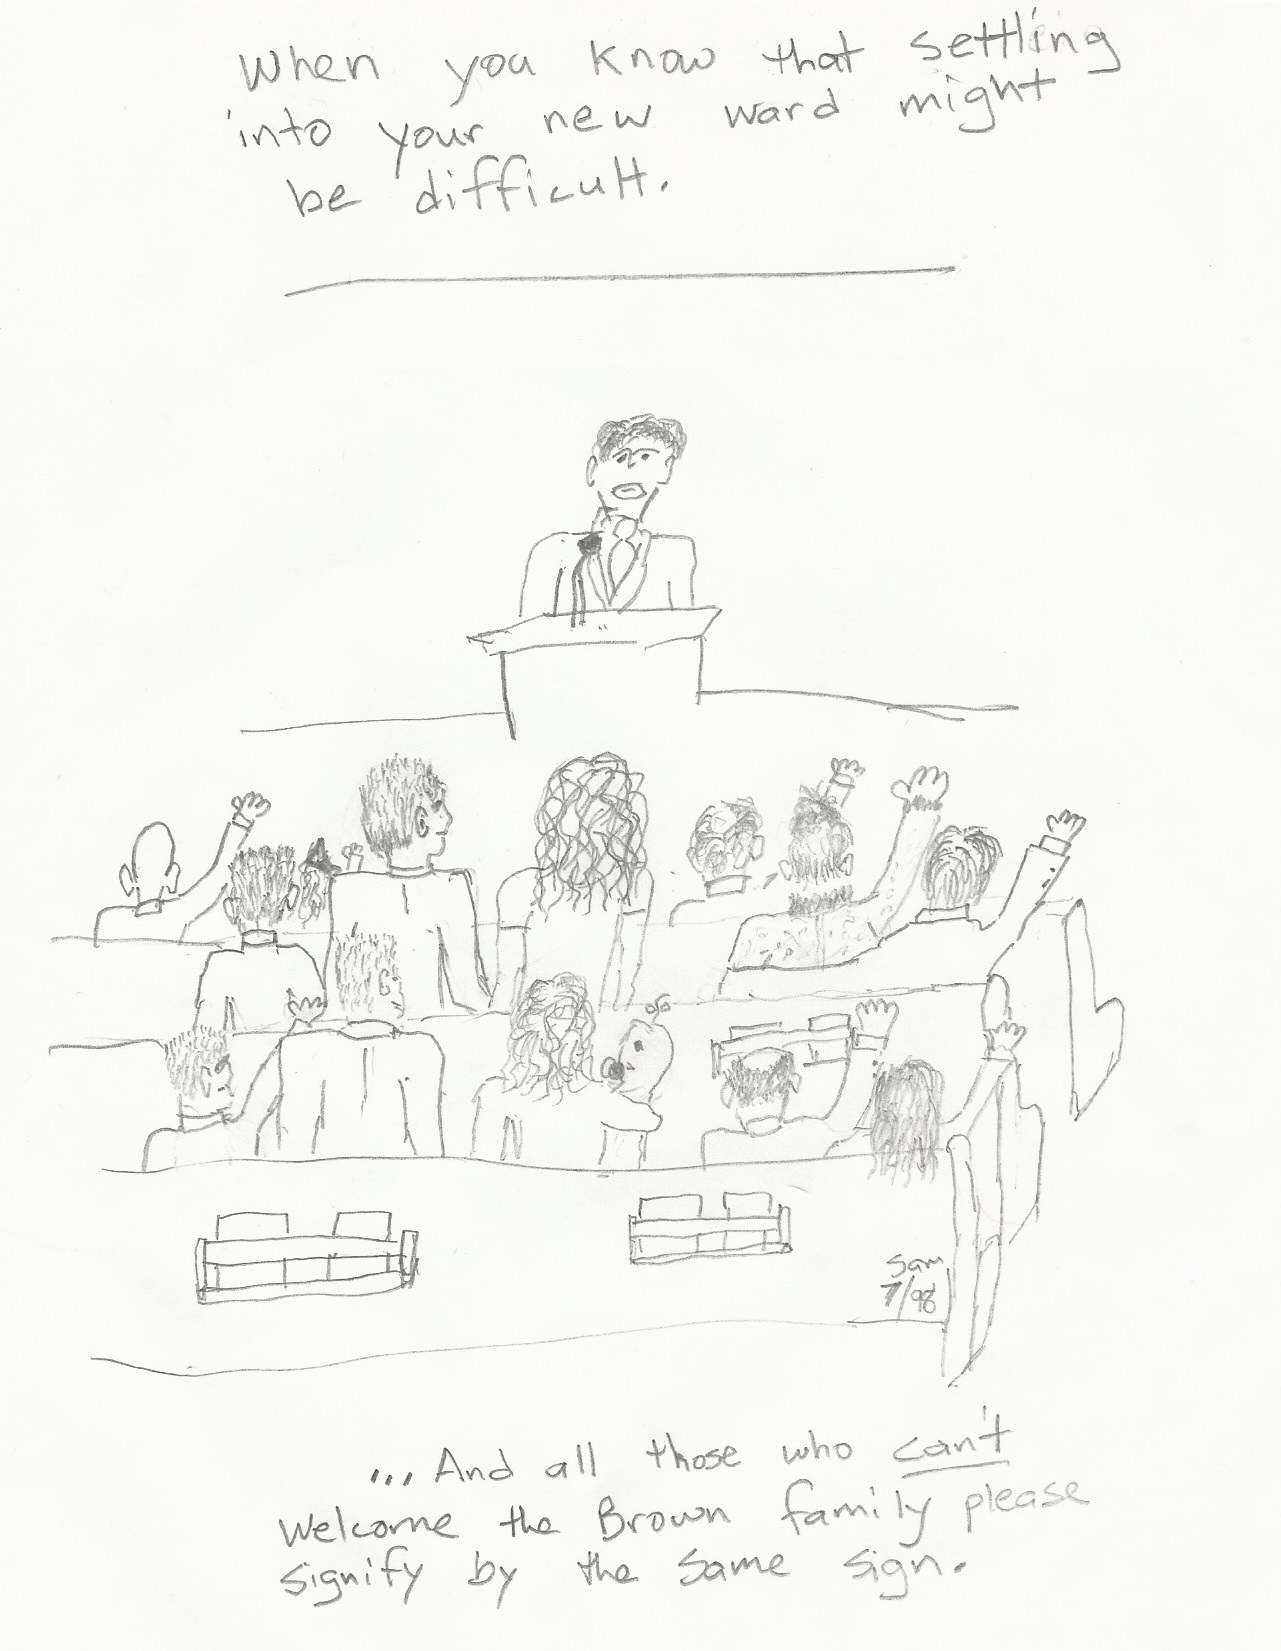 When you know that settling
into your new ward might
be difficult.
Sam
7/98
... And all those who can't
Welcome the Brown family please
signify by the same sign.